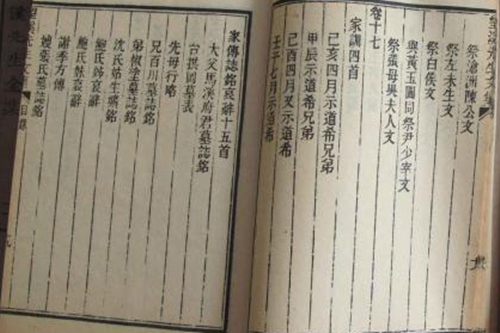 祭滄洲陳公文
祭左未生文
祭白侯文
與黃玉圃同祭尹少宰文
祭張母吳夫人文
卷十七
家訓四首
己亥四月示道希兄弟
甲辰示道希兄弟
己酉四月又示道希
壬子七月示道希
家傳誌銘哀辭十五首
大父馬溪府君墓誌銘
台拱岡墓表
先母行略
兄百川墓誌銘
弟椒塗墓誌銘
沈氏姑生壙銘
鮑氏姊哀辭
鮑氏妹哀辭
謝季方傳
嫂張氏墓誌銘
目錄